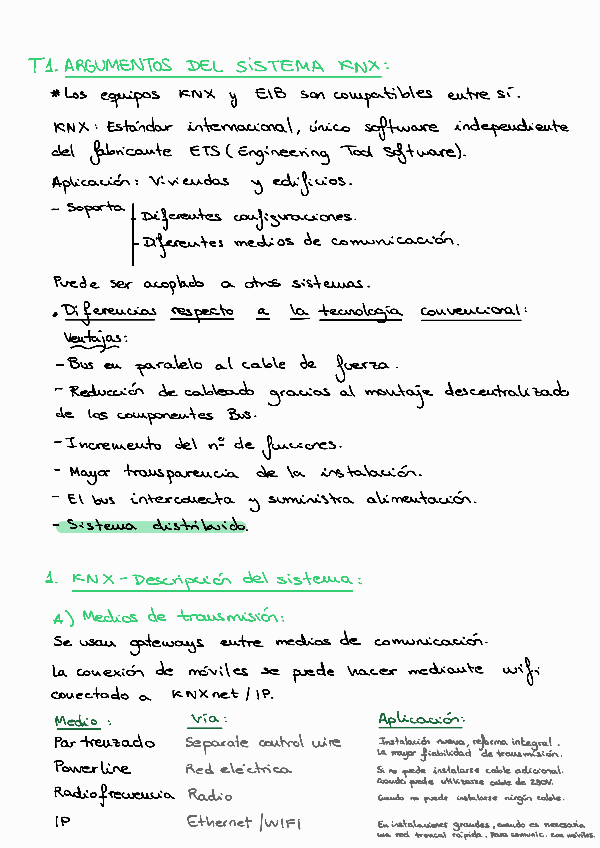 T1. ARGUMENTOS DEL SISTEMA KNX:
* Los equipos KNX y EIB son compatibles entre sí.
KNX: Estándar internacional, único software independiente
del fabricante ETS (Engineering Tool Software).
Aplicación: Viviendas y edificios.
- Soporta
Diferentes configuraciones.
- Diferentes medios de comunicación.
Puede ser acoplado a otros sistemas.
• Diferencias respecto a la tecnología convencional:
Ventajas:
- Bus en paralelo al cable de fuerza.
- Reducción de cableado gracias al montaje descentralizado
de los componentes Bus.
- Incremento del nº de funciones.
- Mayor transparencia de la instalación.
- El bus interconecta y suministra alimentación.
- Sistema distribuido.
1. KNX - Descripción del sistema:
A) Medios de transmisión:
Se usan gateways entre medios de comunicación.
La conexión de móviles se puede hacer mediante wifi
conectado a KNXnet / IP.
Medio: Vía: Aplicación:
Par trenzado Separate control wire Instalación nueva, reforma integral.
La mayor fiabilidad de transmisión.
Powerline Red eléctrica Si no puede instalarse cable adicional.
Cuando puede utilizarse cable de 230V.
Radiofrecuencia Radio Cuando no puede instalarse ningún cable.
IP Ethernet / WIFI En instalaciones grandes, cuando es necesaria
una red troncal rápida. Para comunic. con móviles.